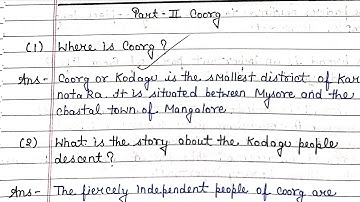 Part - II Coorg
(1) Where is Coorg ?
Ans - Coorg or Kodagu is the smallest district of Kar
nataka. It is situated between Mysore and the
coastal town of Mangalore
(2) What is the story about the Kodagu people
descent ?
Ans - The fiercely independent people of coorg are